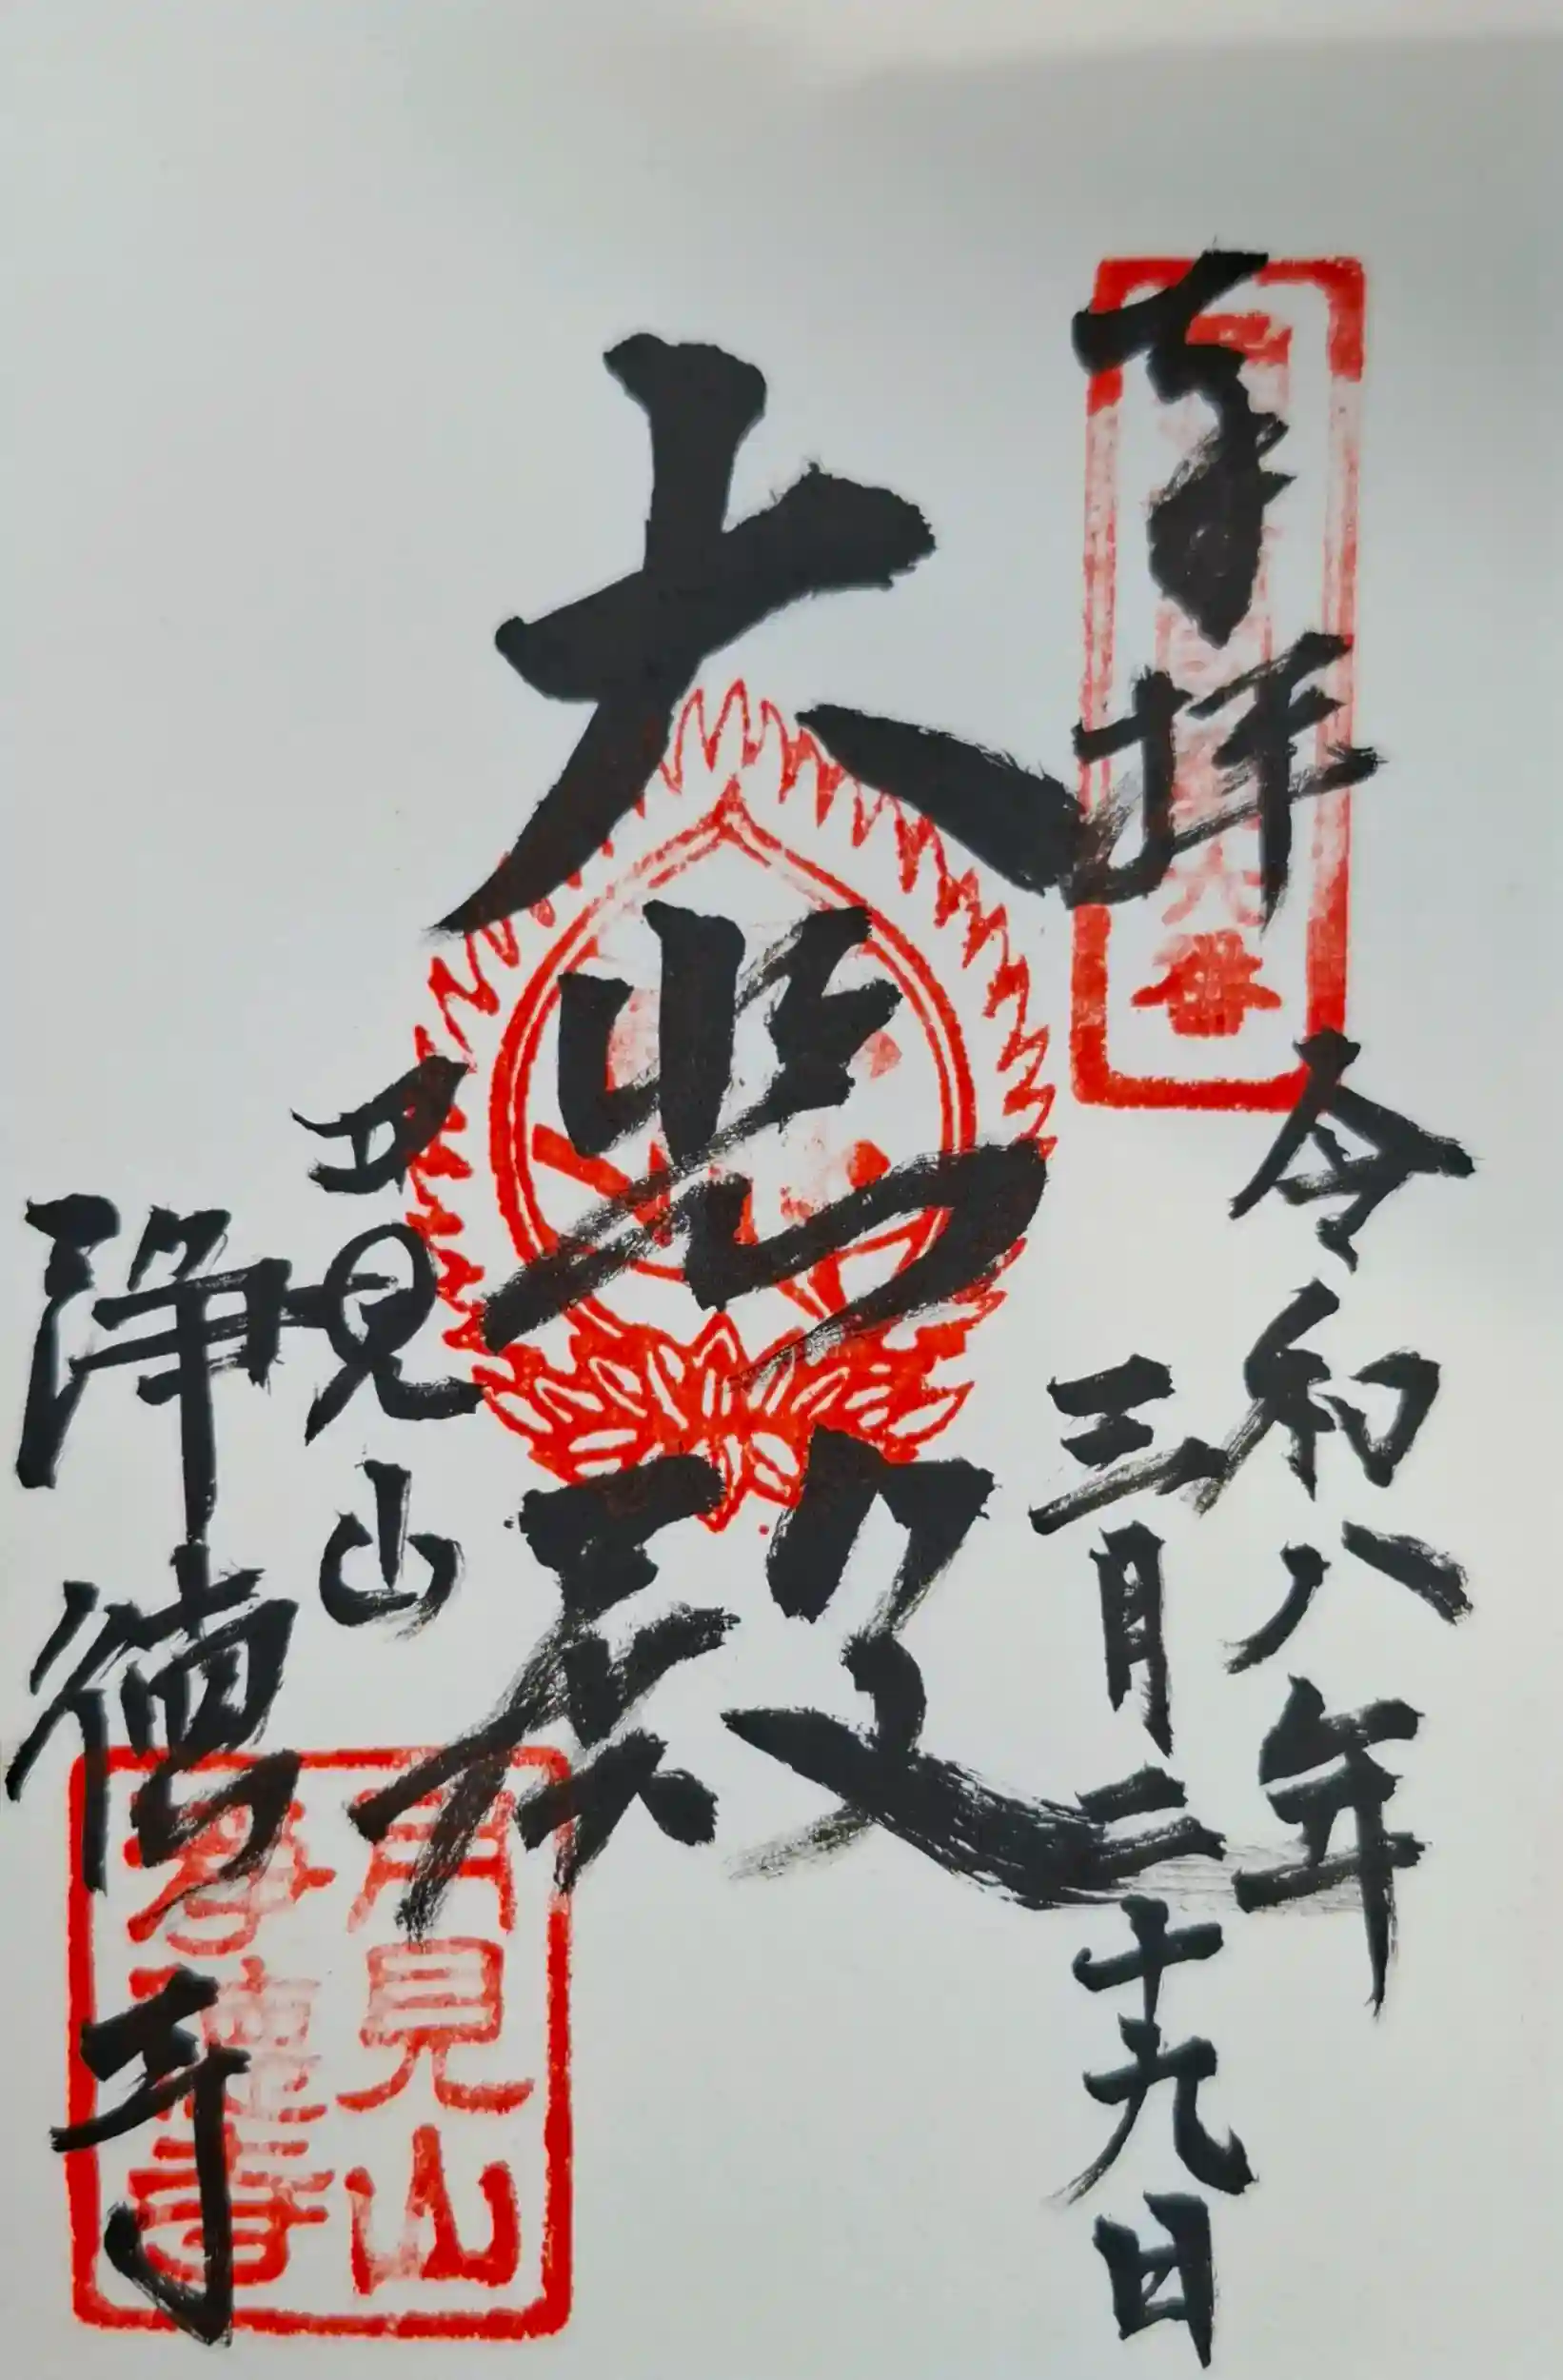 奉拝
令和八年
三月二十九日
大悲殿
見山
浄徳寺
見山
浄徳寺